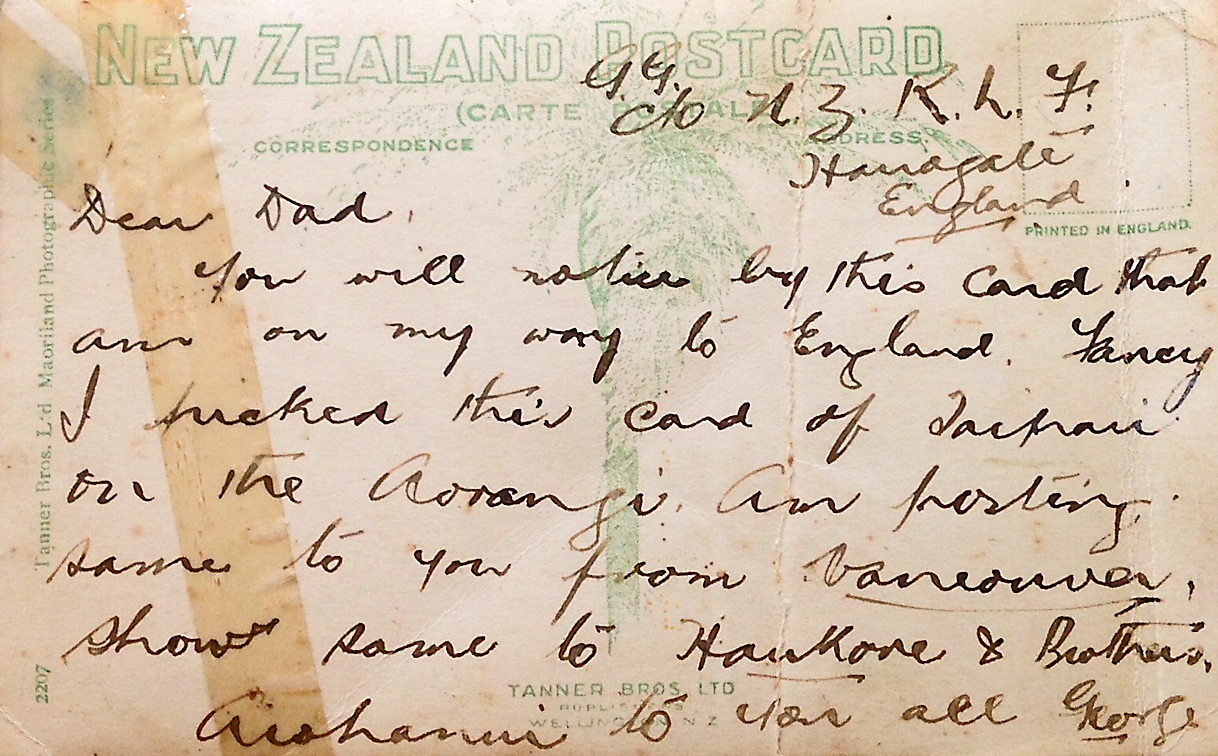 NEW ZEALAND POSTCARD
(CARTE POSTALE)
CORRESPONDENCE
ADDRESS
G.G.
c/o N.Z. R. L. F.
Harrogate
England
PRINTED IN ENGLAND.
Dear Dad,
You will notice by this card that
am on my way to England. Fancy
I picked this card of
on the Aorangi. Am posting
same to you from Vancouver,
show same to & Brothers.
to you all George
Tanner Bros. Ltd Maoriland Photographic Series
2207
TANNER BROS. LTD
PUBLISHERS
WELLINGTON N.Z